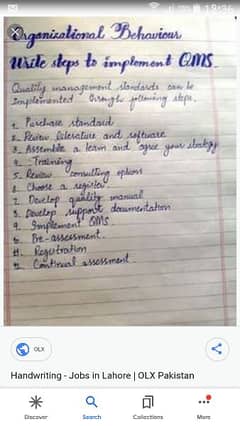 19:36
Organizational Behaviour
Write steps to implement QMS.
Quality management standards can be
implemented through following steps.
1. Purchase standard
2. Review literature and software
3. Assemble a team and agree your strategy
4. Training
5. Review consulting options
6. Choose a register
7. Develop quality manual
8. Develop support documentation
9. Implement QMS
10. Pre-assessment.
11. Registration
12. Continual assessment
OLX
Handwriting - Jobs in Lahore | OLX Pakistan
Discover Search Collections More